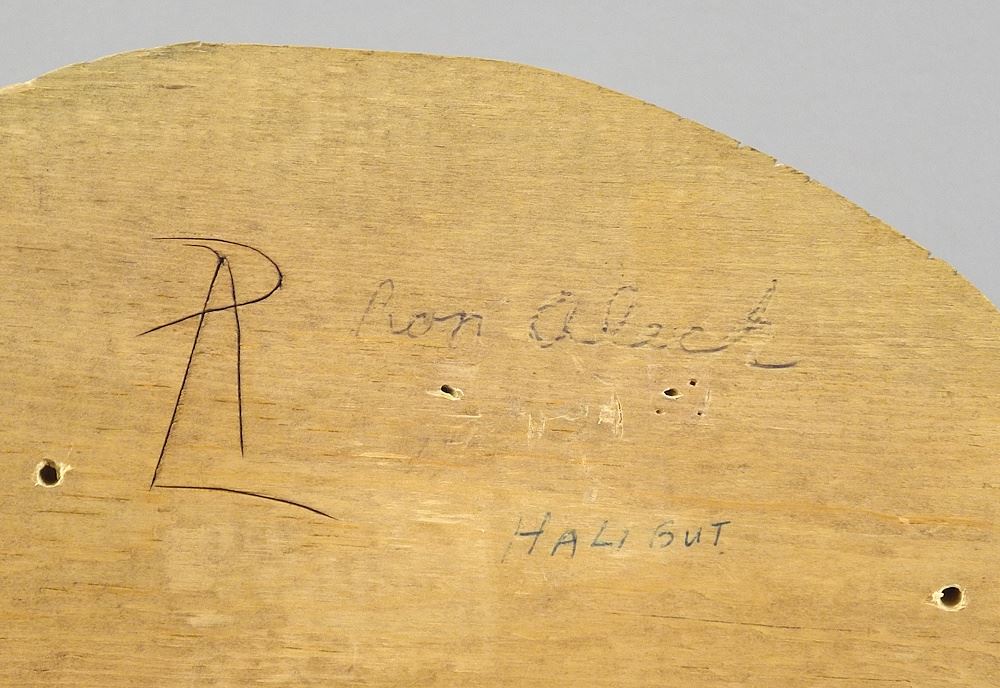 Ron Aleck
HALIBUT